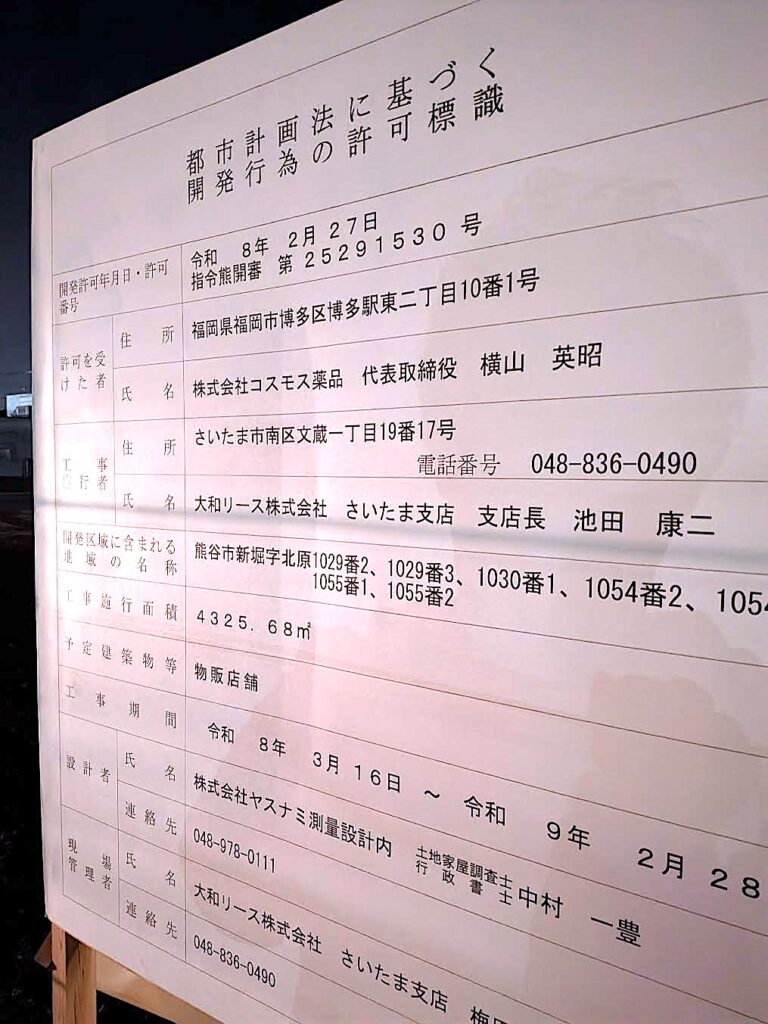 都市計画法に基づく
開発行為の許可標識
開発許可年月日・許可番号
令和 8年 2月 27日
指令熊開審 第 25291530 号
許可を受けた者
住所
福岡県福岡市博多区博多駅東二丁目10番1号
氏名
株式会社コスモス薬品 代表取締役 横山 英昭
工事施行者
住所
さいたま市南区文蔵一丁目19番17号
電話番号 048-836-0490
氏名
大和リース株式会社 さいたま支店 支店長 池田 康二
開発区域に含まれる地域の名称
熊谷市新堀字北原1029番2、1029番3、1030番1、1054番2、1054
1055番1、1055番2
工事施行面積
4325.68㎡
予定建築物等
物販店舗
工事期間
令和 8年 3月 16日 ～ 令和 9年 2月 28
設計者
氏名
株式会社ヤスナミ測量設計内 土地家屋調査士 行政書士 中村 一豊
連絡先
048-978-0111
現場管理者
氏名
大和リース株式会社 さいたま支店 梅
連絡先
048-836-0490